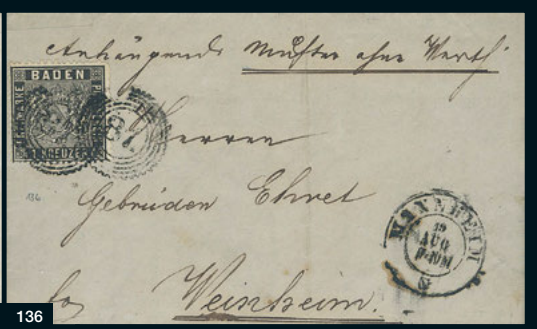 Anhängend Muster ohne Werth.
BADEN
FREIMARKE
1 KREUZER.
87
Herren
Gebrüder Ehret
136
MANNHEIM
19
AUG
Weinheim.
136